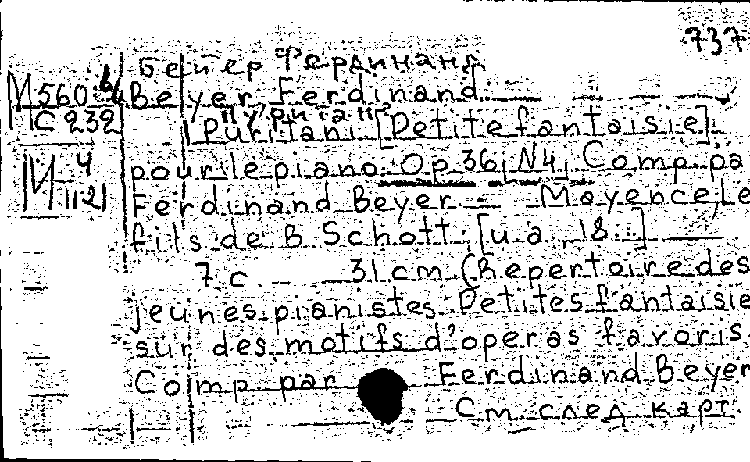 737
Бейер Фердинанд
М560 Beyer, Ferdinand.
С232 "Пуритане"
Puritani [Petite fantaisie]
И 4 pour le piano. Op 36, N4, Comp. pa
1121 Ferdinand Beyer – Mayence, le
fils de B. Schott, [u. a., 18..]
7 с. 31 cm (Repertoire des
jeunes pianistes. Petites fantaisie
sur des motifs d'operas favoris.
Comp. par Ferdinand Beyer
См. след. карт.